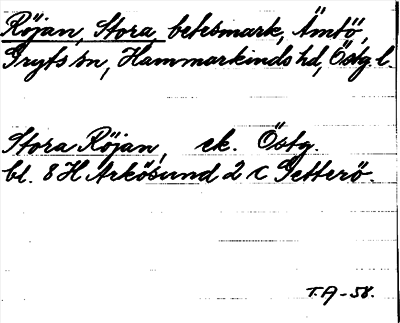 Röjan, Stora, betesmark, Ämtö,
Gryts sn, Hammarkinds hd, Östg. l.
Stora Röjan, ek. Östg.
bl. 8 H Arkösund 2 c Getterö.
T.A-58.